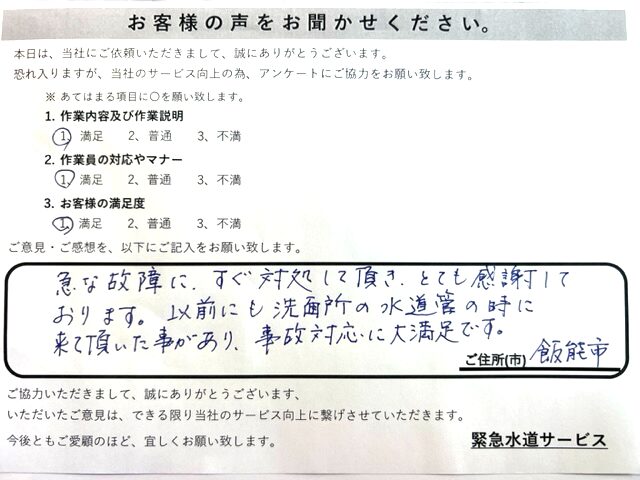 お客様の声をお聞かせください。
本日は、当社にご依頼いただきまして、誠にありがとうございます。
恐れ入りますが、当社のサービス向上の為、アンケートにご協力をお願い致します。
※ あてはまる項目に〇を願い致します。
1. 作業内容及び作業説明
1、満足 2、普通 3、不満
2. 作業員の対応やマナー
1、満足 2、普通 3、不満
3. お客様の満足度
1、満足 2、普通 3、不満
ご意見・ご感想を、以下にご記入をお願い致します。
急な故障に、すぐ対処して頂き、とても感謝して
おります。以前にも洗面所の水道管の時に
来て頂いた事があり、事故対応に大満足です。
ご住所(市) 飯能市
ご協力いただきまして、誠にありがとうございます、
いただいたご意見は、できる限り当社のサービス向上に繋げさせていただきます。
今後ともご愛顧のほど、宜しくお願い致します。
緊急水道サービス